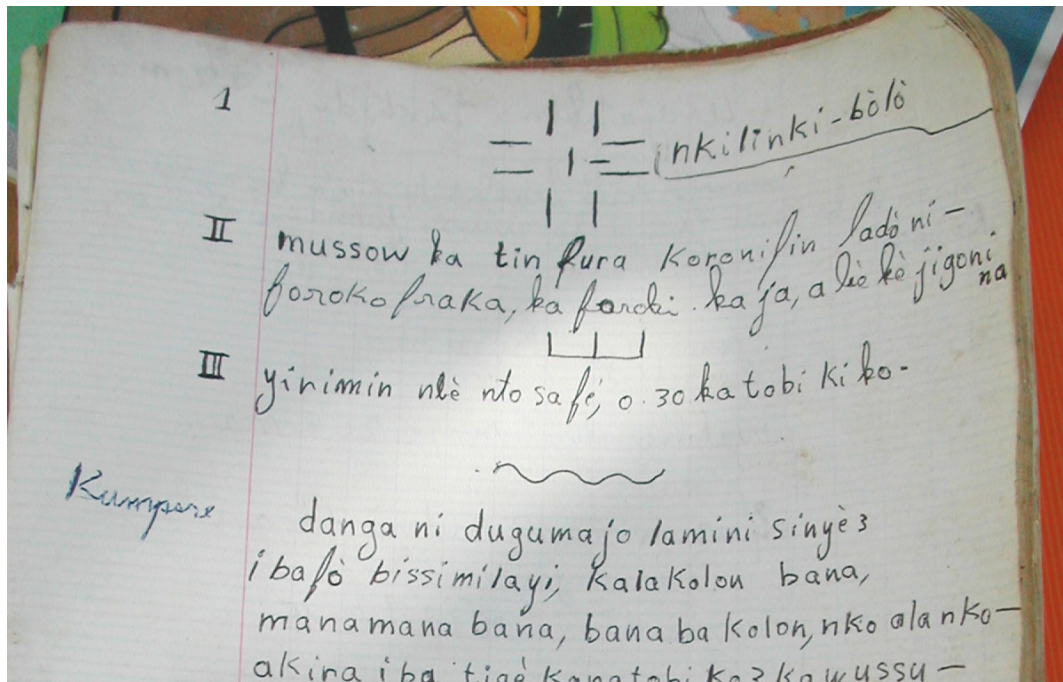 1
inkilinki-bòlò
II mussow ka tin fura koronifin ladòni-
forokofraka, ka farobi ka ja, a kè jigoni
na
III yirimin nkè nto sa fé, o. 30 ka tobi ki ko-
Kumpere
danga ni dugumajo lamini sinyè 3
i bafò bissimilayi, kalakolon bana,
manamana bana, bana ba kolon, nko ala nko-
akina i ba tigè kanatobi ko 3 ka wussu-